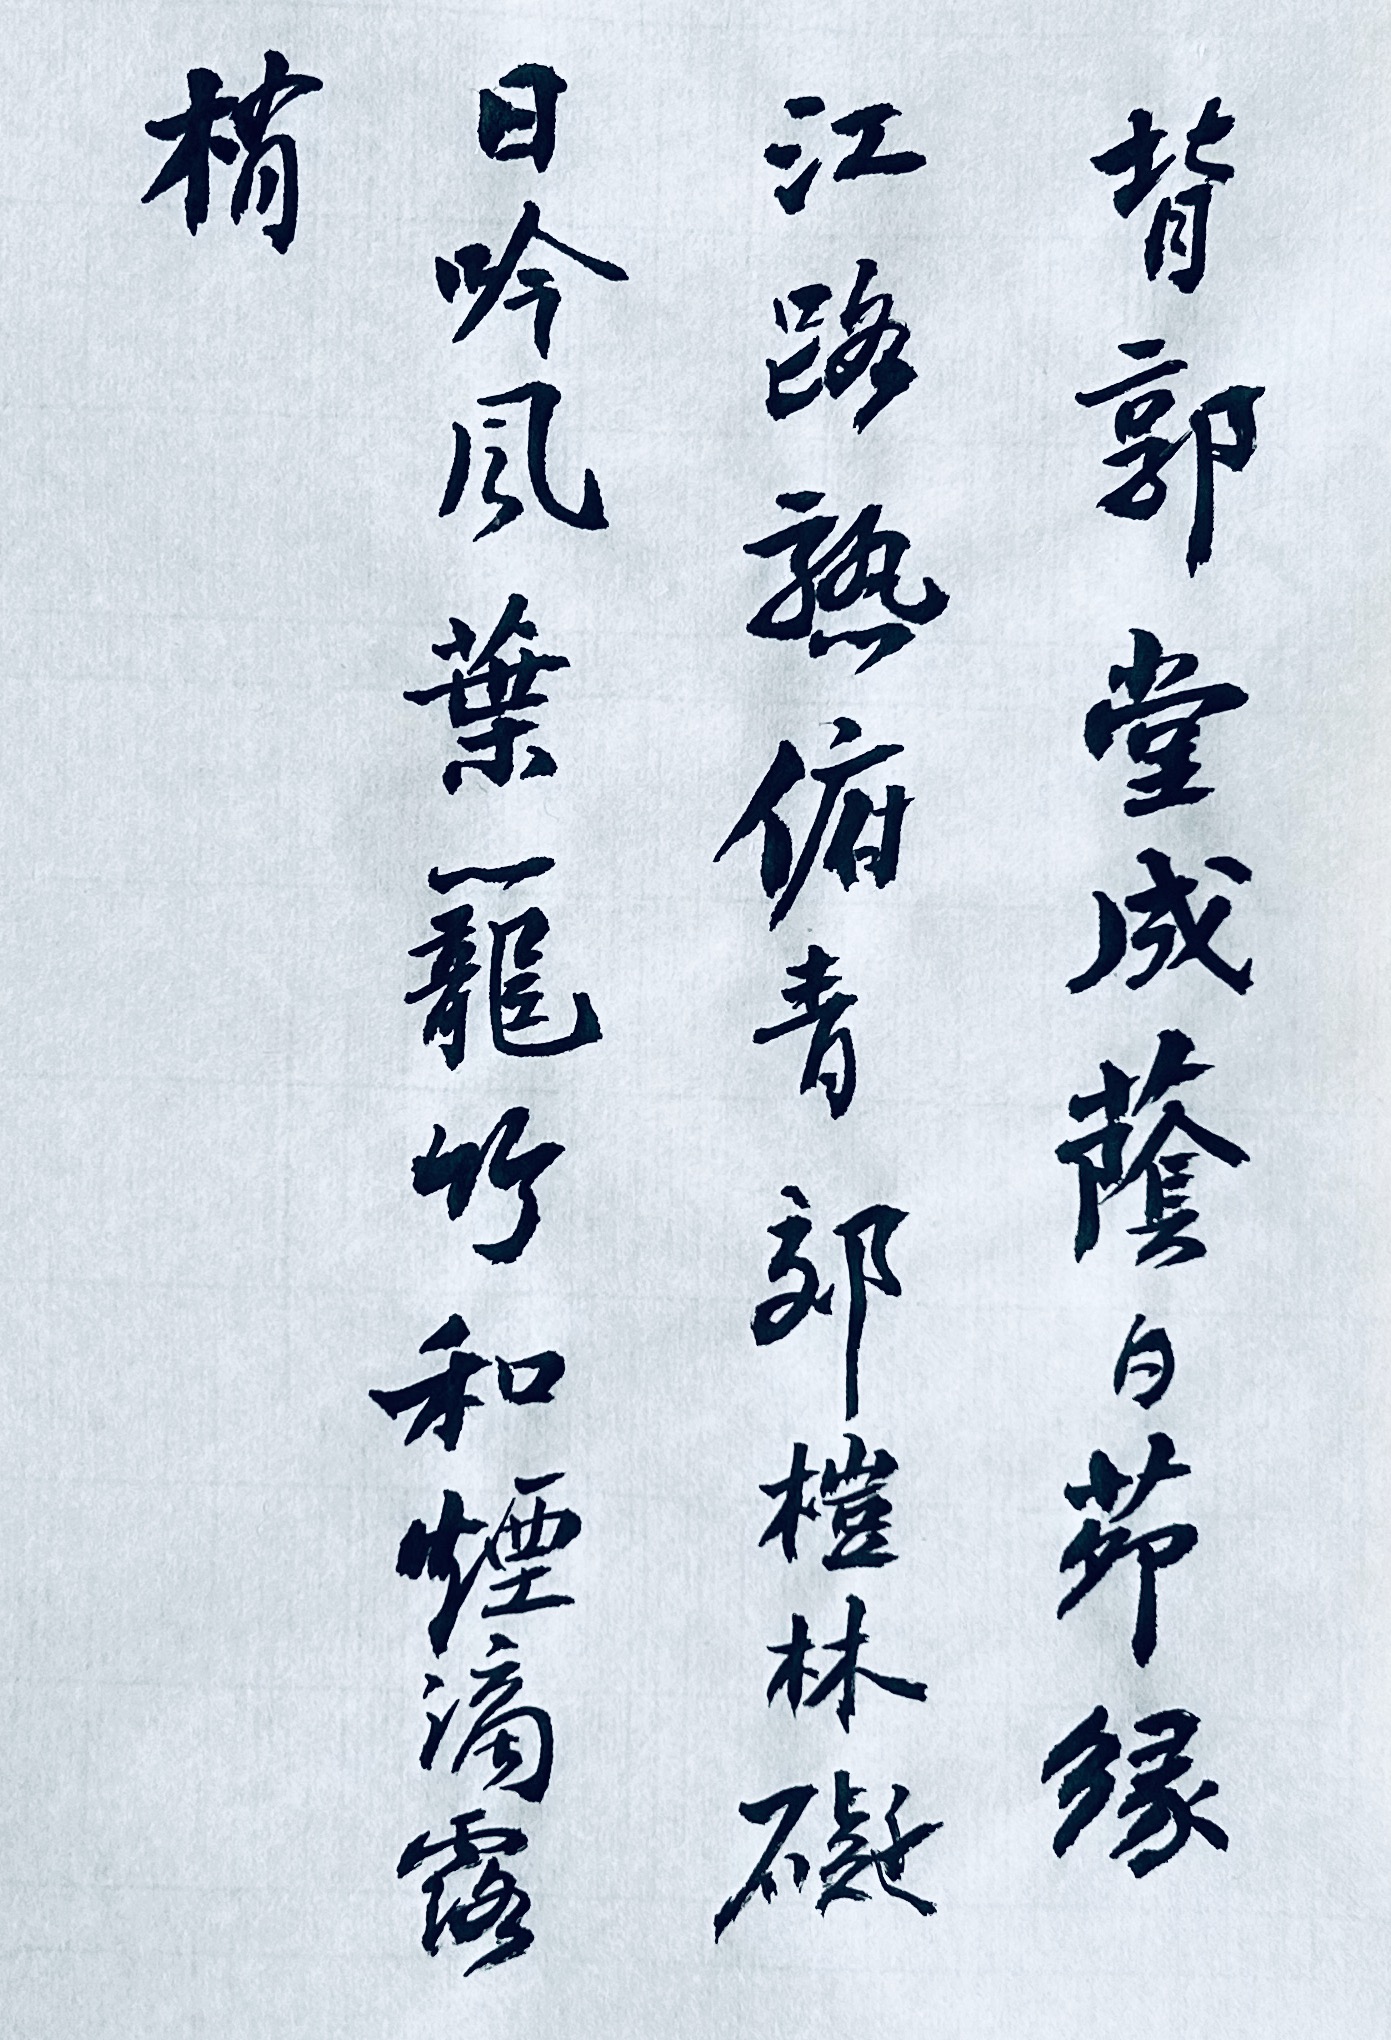 背郭堂成蔭白茆緣
江路熟俯青郊榿林礙
日吟風葉一龍竹和煙滴露
梢